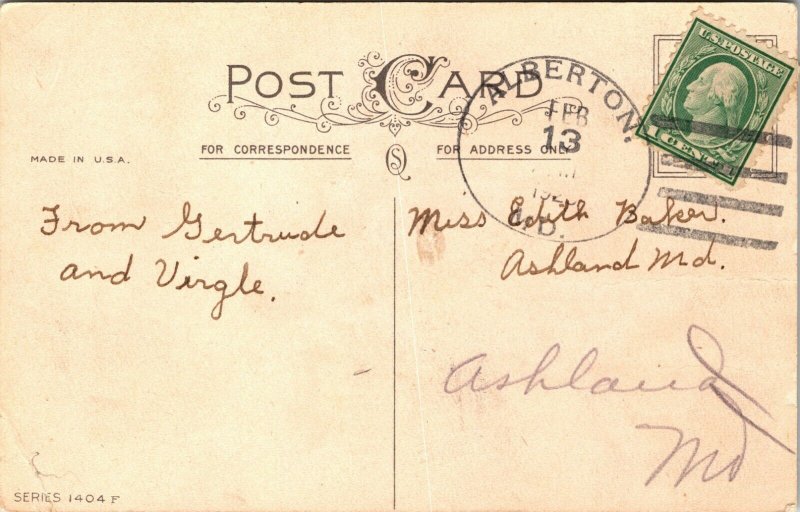 POST CARD
FOR CORRESPONDENCE
FOR ADDRESS ONLY
MADE IN U.S.A.
U.S. POSTAGE
1 CENT 1
ALBERTON.
FEB
13
From Gertrude
and Virgle.
Miss Edith Baker.
Ashland Md.
Ashland
Md
SERIES 1404 F